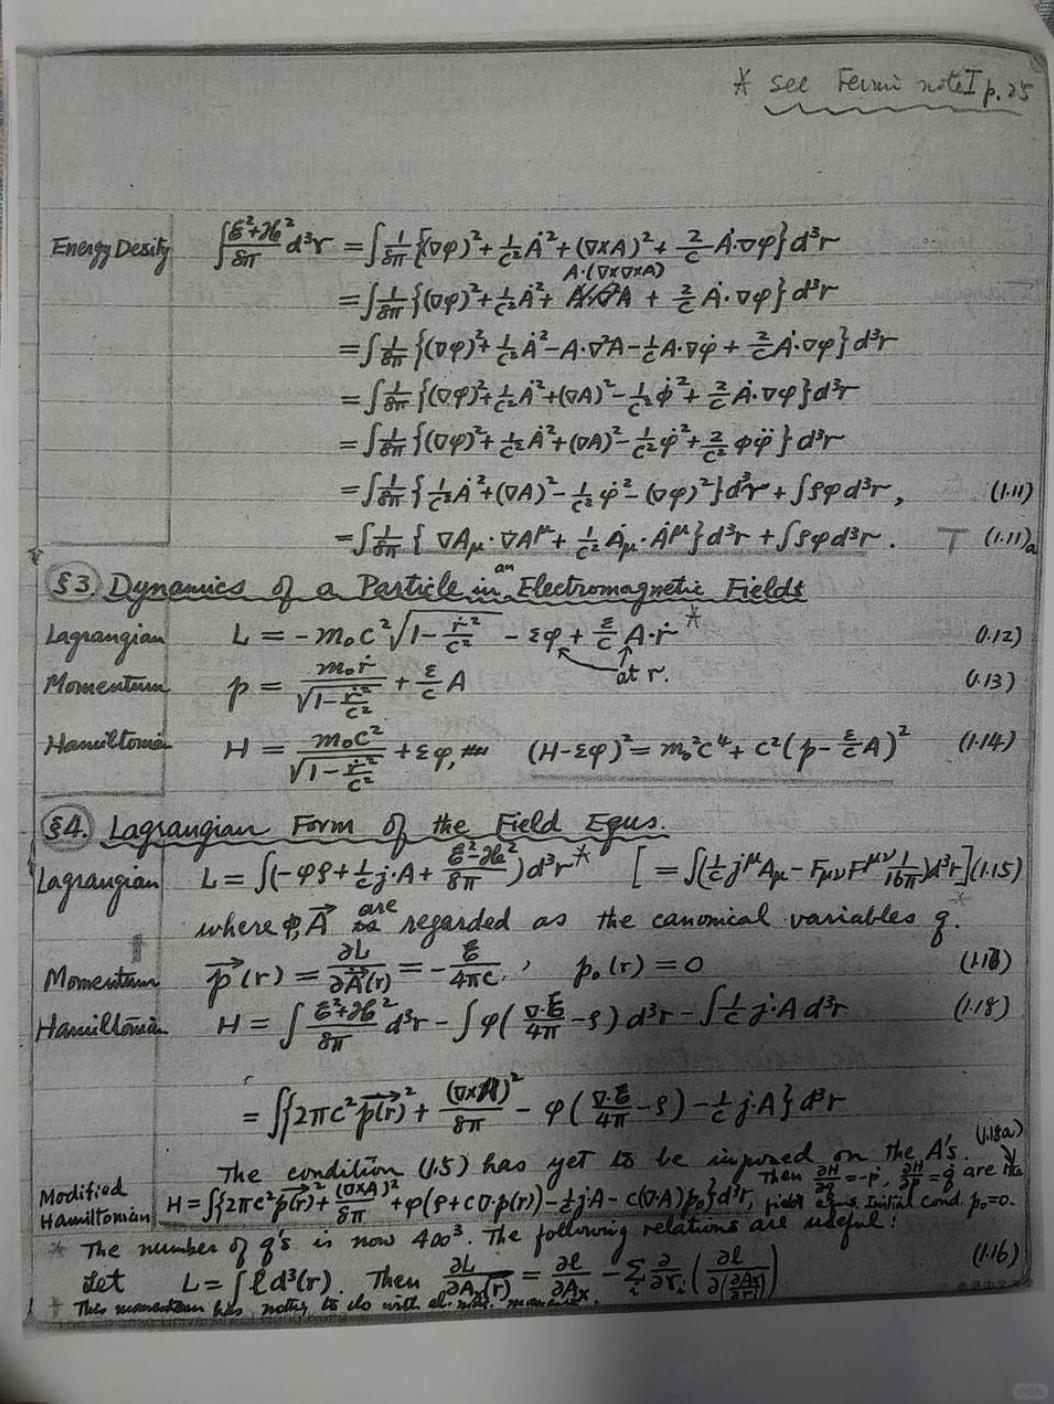 * see Fermi note I p. 25
Energy Desity ∫(ℰ²+ℋ²)/8π d³r = ∫ 1/8π {(∇φ)² + 1/c² Ȧ² + (∇×A)² + 2/c Ȧ·∇φ} d³r
A·(∇×∇×A)
= ∫ 1/8π {(∇φ)² + 1/c² Ȧ² + + 2/c Ȧ·∇φ} d³r
= ∫ 1/8π {(∇φ)² + 1/c² Ȧ² − A·∇²A − 1/c A·∇φ̇ + 2/c Ȧ·∇φ} d³r
= ∫ 1/8π {(∇φ)² + 1/c² Ȧ² + (∇A)² − 1/c² φ̇² + 2/c Ȧ·∇φ} d³r
= ∫ 1/8π {(∇φ)² + 1/c² Ȧ² + (∇A)² − 1/c² φ̇² + 2/c² φφ̈} d³r
= ∫ 1/8π {1/c² Ȧ² + (∇A)² − 1/c² φ̇² − (∇φ)²} d³r + ∫ρφ d³r, (1.11)
= ∫ 1/8π {∇A_μ·∇A^μ + 1/c² Ȧ_μ·Ȧ^μ} d³r + ∫ρφ d³r. (1.11)a
§3. Dynamics of a Particle in an Electromagnetic Fields
Lagrangian L = −m₀c² √(1 − ṙ²/c²) − εφ + ε/c A·ṙ * (1.12)
at r.
Momentum p = m₀ṙ/√(1 − ṙ²/c²) + ε/c A (1.13)
Hamiltonian H = m₀c²/√(1 − ṙ²/c²) + εφ, (H−εφ)² = m₀²c⁴ + c²(p − ε/c A)² (1.14)
§4. Lagrangian Form of the Field Equs.
Lagrangian L = ∫(−φρ + 1/c j·A + (ℰ²−ℋ²)/8π) d³r * [= ∫(1/c j^μ A_μ − F_μν F^μν 1/16π) d³r] (1.15)
where φ, A⃗ are regarded as the canonical variables q.
Momentum p⃗(r) = ∂L/∂A⃗̇(r) = −ℰ/4πc, p₀(r) = 0
Hamiltonian H = ∫(ℰ²+ℋ²)/8π d³r − ∫φ(∇·ℰ/4π − ρ) d³r − ∫1/c j·A d³r (1.18)
= ∫{2πc² p⃗(r)² + (∇×A)²/8π − φ(∇·ℰ/4π − ρ) − 1/c j·A} d³r
The condition (1.5) has yet to be imposed on the A's. (1.18a)
Then ∂H/∂q = −ṗ, ∂H/∂p = q̇ are the
Modified Hamiltonian H = ∫{2πc² p(r)² + (∇×A)²/8π + φ(ρ + c∇·p(r)) − 1/c j·A − c(∇·A)p₀} d³r, field equs. Initial cond. p₀=0.
* The number of q's is now 4∞³. The following relations are useful:
Let L = ∫ℓ d³(r). Then ∂L/∂Aₓ(r) = ∂ℓ/∂Aₓ − Σᵢ ∂/∂rᵢ (∂ℓ/∂(∂Aₓ/∂rᵢ)) (1.16)
† This momentum has nothing to do with